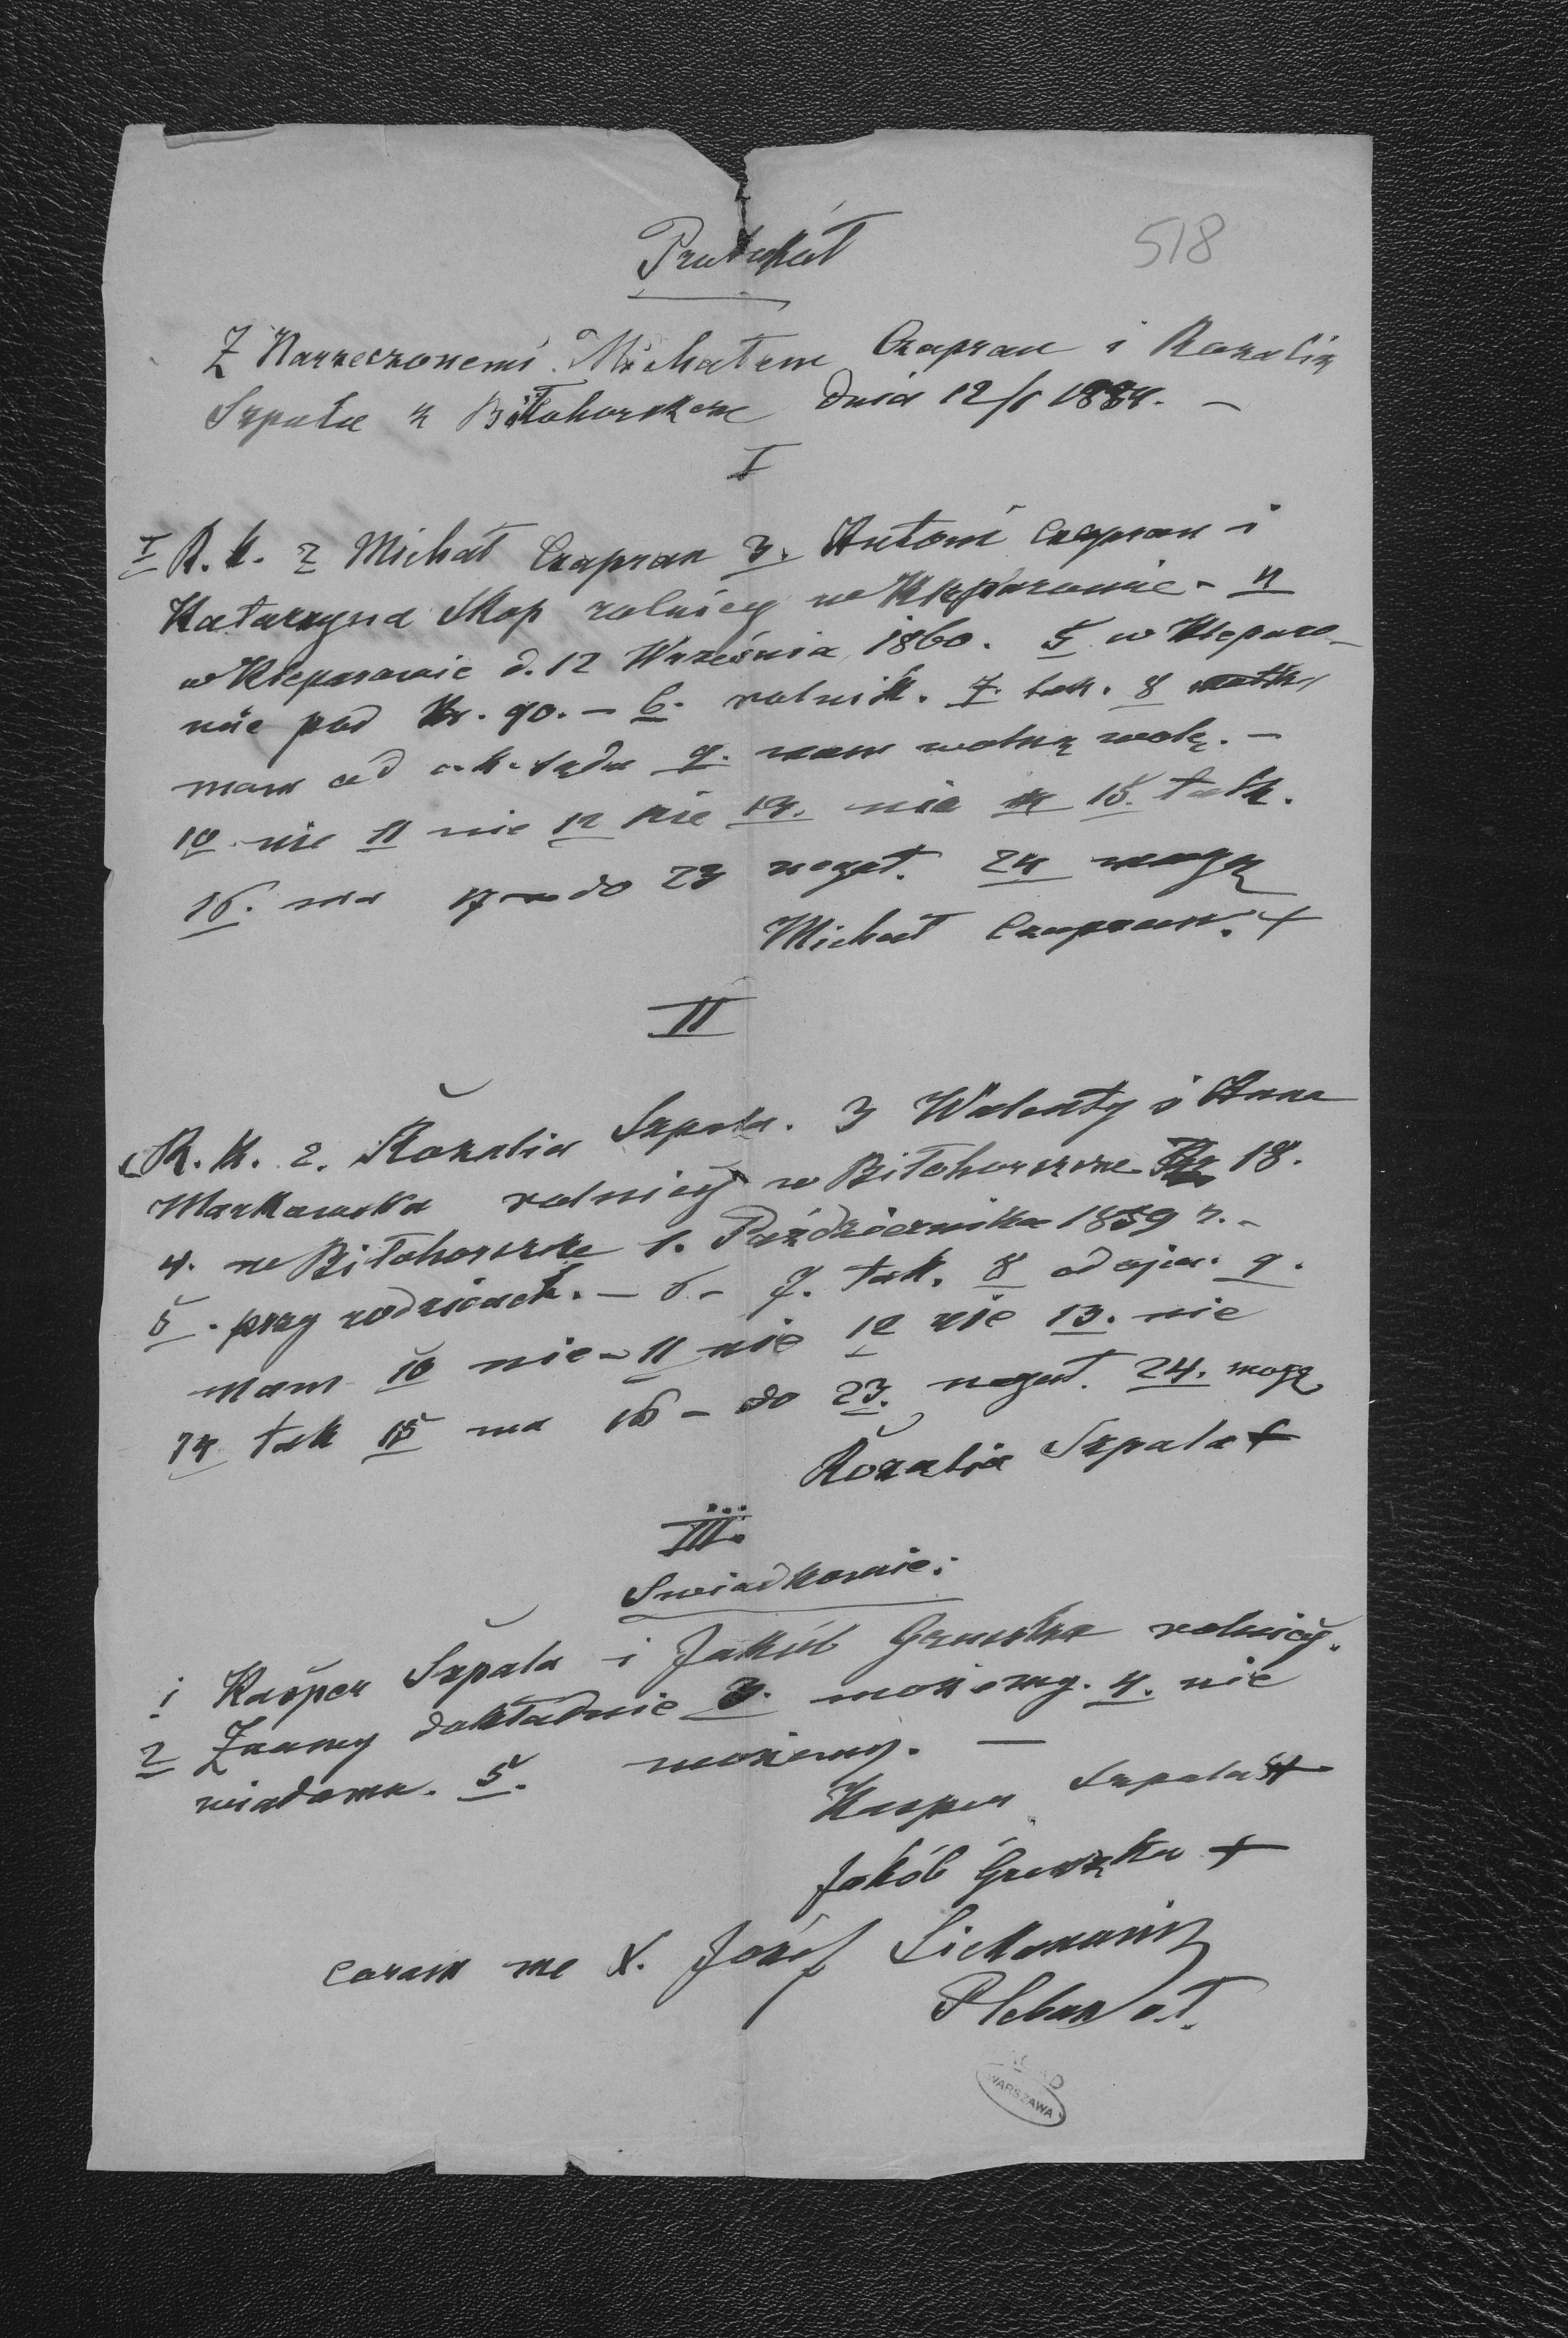 518
Protokół
Z Narzeczonemi Michałem Czapran i Rozalią
Szpała z Biłohorszcze dnia 12/1 1884. –
I
I R. K. 2 Michał Czapran 3. Antoni Czapran i
Katarzyna Skop rolnicy w Kleparowie – 4
w Kleparowie d. 12 Września 1860. 5 w Kleparo-
wie pod Nr. 90. – 6. rolnik. 7. tak. 8
mam od c. k. sądu 9. mam wolną wolę. –
10 nie 11 nie 12 nie 13. nie 14 15. tak.
16. ma 17 – do 23 negat. 24 mogę
Michał Czapran. +
II
R. K. 2. Rozalia Szpała. 3 Walenty i Anna
Markowska rolnicy w Biłohorszcze 18.
4. w Biłohorszcze 1. Października 1859 r. –
5. przy rodzicach. – 6 – 7. tak. 8 od ojca. 9.
mam 10 nie – 11 nie 12 nie 13. nie
14 tak 15 ma 16 – do 23. negat. 24. mogę
Rozalia Szpała +
III.
Swiadkowie:
1 Kasper Szpała i Jakób Gruszka rolnicy.
2 Znamy dokładnie 3. możemy. 4. nie
wiadomo. 5. możemy. –
Kasper Szpała +
Jakób Gruszka +
coram me X. Józef
Pleban o.ł.
AGAD
WARSZAWA